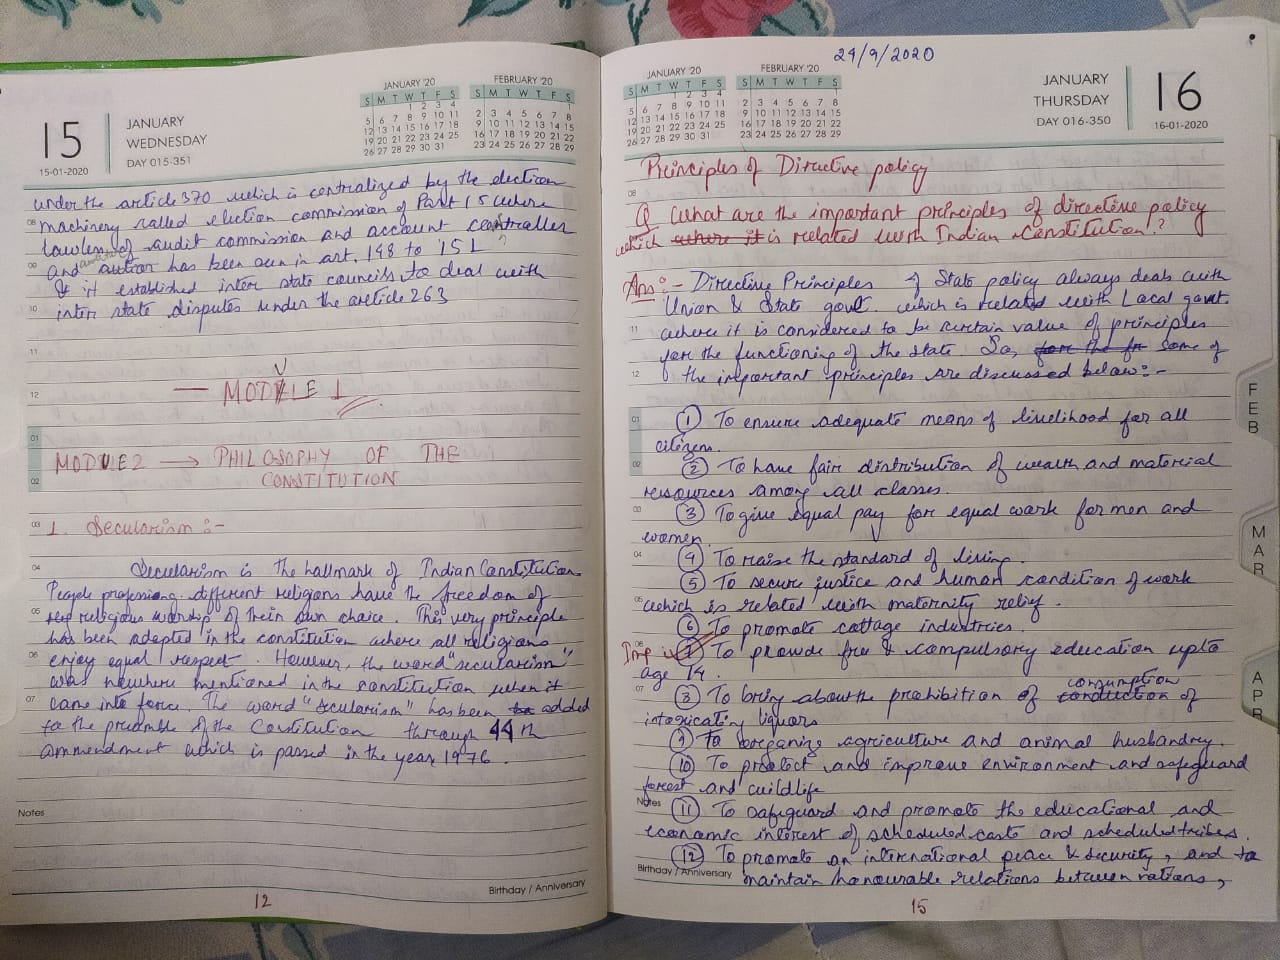 15
15-01-2020
JANUARY
WEDNESDAY
DAY 015-351
JANUARY '20
S M T W T F S
1 2 3 4
5 6 7 8 9 10 11
12 13 14 15 16 17 18
19 20 21 22 23 24 25
26 27 28 29 30 31
FEBRUARY '20
S M T W T F S
1
2 3 4 5 6 7 8
9 10 11 12 13 14 15
16 17 18 19 20 21 22
23 24 25 26 27 28 29
under the article 370 which is centralized by the election
machinery called election commission of Part 15 where
of audit commission and account
and has been seen in art. 148 to 151
& it established inter state councils to deal with
inter state disputes under the article 263
— MODULE 1
MODULE 2 → PHILOSOPHY OF THE
CONSTITUTION
1. Secularism :-
Secularism is the hallmark of Indian Constitution
People professing different religions have the freedom of
religious worship of their own choice. This very principle
has been adapted in the constitution where all religions
enjoy equal respect. However, the word "secularism"
was nowhere mentioned in the constitution when it
came into force. The word "secularism" has been added
to the preamble of the Constitution through 44th
ammendment which is passed in the year 1976.
Notes
Birthday / Anniversary
12
29/9/2020
JANUARY '20
S M T W T F S
1 2 3 4
5 6 7 8 9 10 11
12 13 14 15 16 17 18
19 20 21 22 23 24 25
26 27 28 29 30 31
FEBRUARY '20
S M T W T F S
1
2 3 4 5 6 7 8
9 10 11 12 13 14 15
16 17 18 19 20 21 22
23 24 25 26 27 28 29
JANUARY
THURSDAY
DAY 016-350
16
16-01-2020
Principles of Directive policy
Q What are the important principles of directive policy
which where it is related with Indian Constitution?
Ans :- Directive Principles of State policy always deals with
Union & State govt. which is related with Local govt.
where it is considered to be certain value of principles
for the functioning of the state. So, some of
the important principles are discussed below :-
① To ensure adequate means of livelihood for all
citizens.
② To have fair distribution of wealth and material
resources among all classes.
③ To give equal pay for equal work for men and
women.
④ To raise the standard of living.
⑤ To secure justice and human condition of work
which is related with maternity relief.
⑥ To promote cottage industries.
Imp ⑦ To provide free & compulsory education upto
age 14.
⑧ To bring about the prohibition of consumption of
intoxicating liquors
⑨ To organize agriculture and animal husbandry.
⑩ To protect and improve environment and safeguard
forest and wildlife
Notes
⑪ To safeguard and promote the educational and
economic interest of scheduled caste and scheduled tribes.
⑫ To promote an international peace & security, and to
Birthday / Anniversary
maintain honourable relations between nations,
15
FEB
MAR
APR